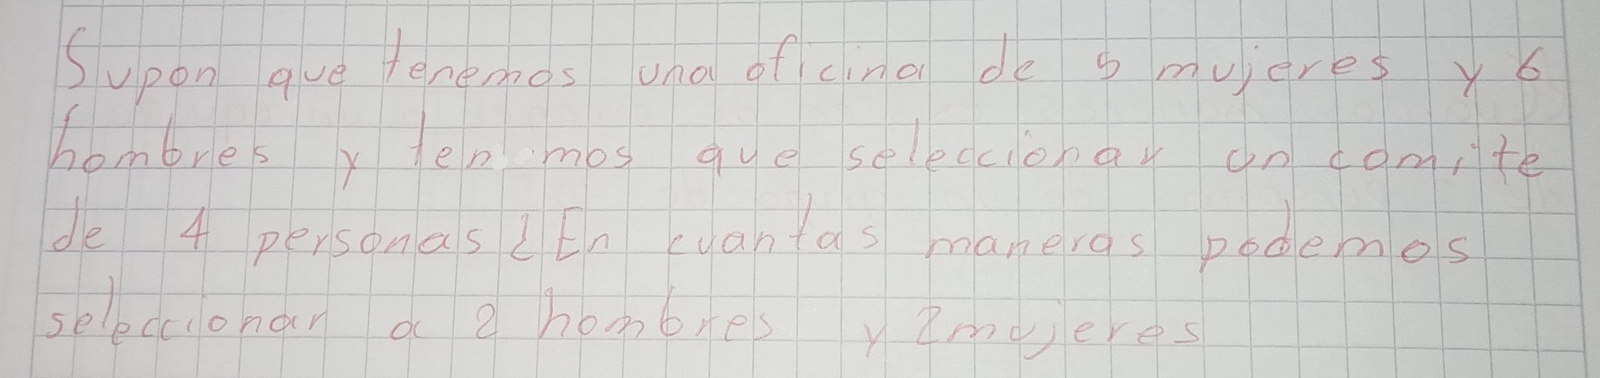 Supon que tenemos una oficina de 5 mujeres y 6
hombres y tenemos que seleccionar un comite
de 4 personas ¿En cuantas maneras podemos
seleccionar a 2 hombres y 2 mujeres